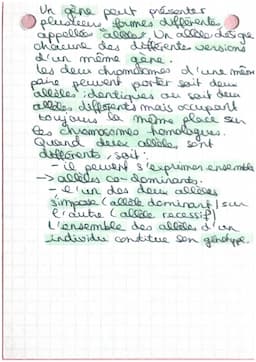 Un gène peut présenter
plusieurs formes différentes
appelées allèles. Un allèle désigne
chacune des différentes versions
d'un même gène.
Les deux chromosomes d'une même
paire peuvent porter soit deux
allèles identiques ou soit deux
allèles différents mais occupant
toujours la même place sur
les chromosomes homologues.
Quand deux allèles sont
différents, soit :
- il peuvent s'exprimer ensemble
-> allèles co-dominants.
- l'un des deux allèles
s'impose (allèle dominant) sur
l'autre (allèle recessif)
L'ensemble des allèles d'un
individu constitue son génotype.